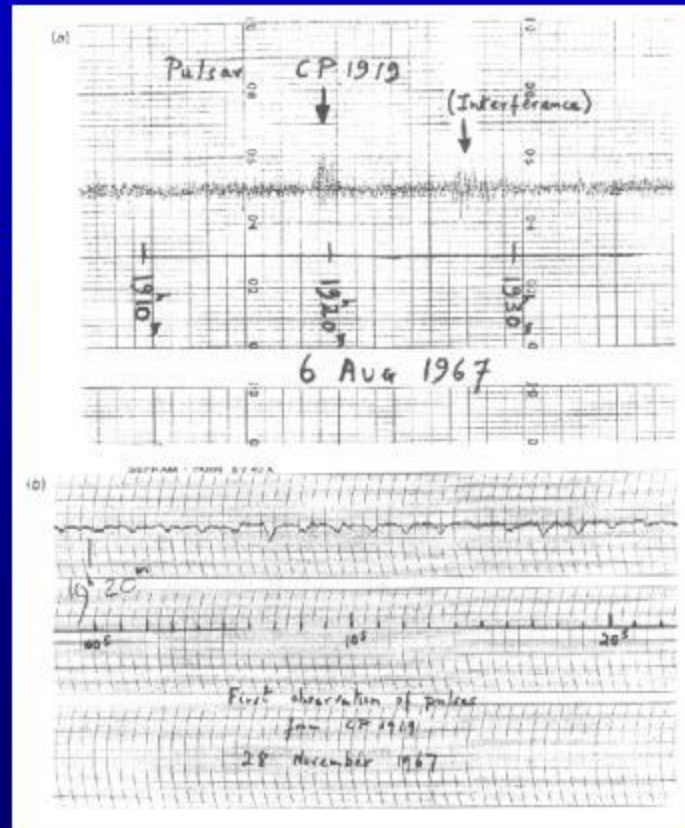 (a)
Pulsar CP 1919
(Interference)
19h10m
19h20m
19h30m
6 Aug 1967
19h 20m
00s 10s 20s
First observation of pulses
from CP 1919
28 November 1967